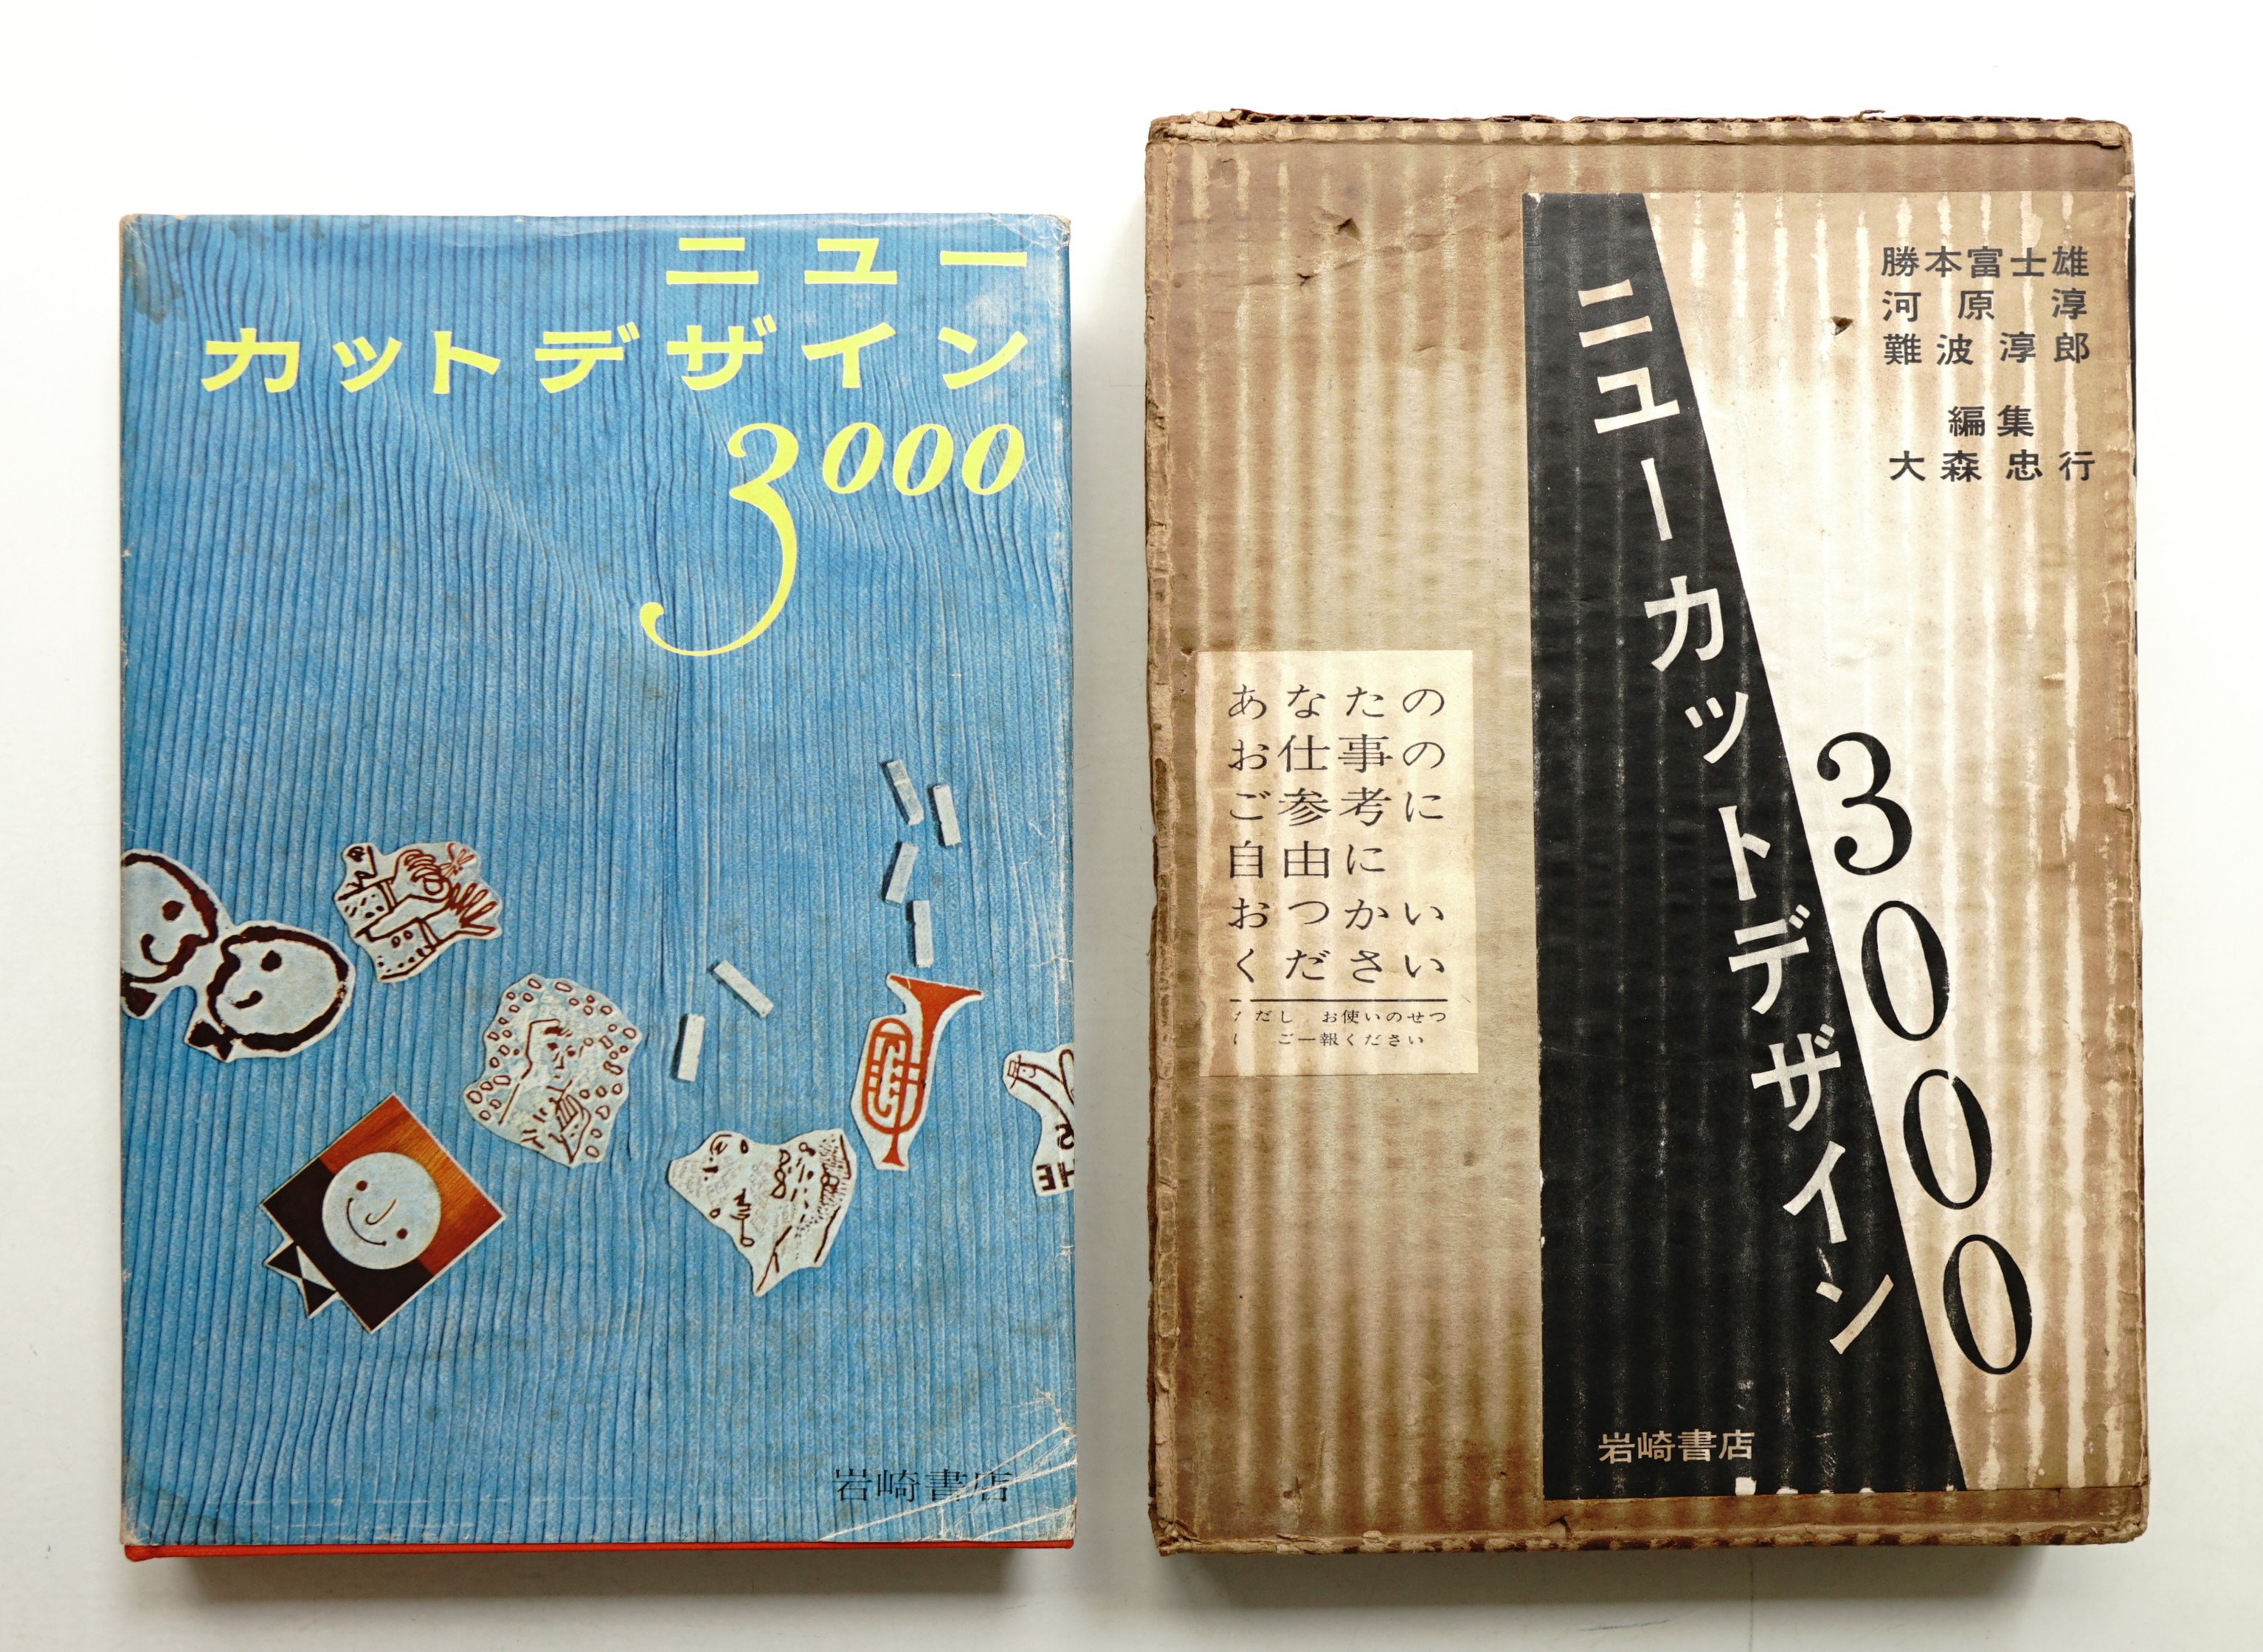 ニュー
カットデザイン
3000
岩崎書店
勝本富士雄
河原淳
難波淳郎
編集
大森忠行
ニューカットデザイン
3000
岩崎書店
あなたの
お仕事の
ご参考に
自由に
おつかい
ください
ただし お使いのせつ
ご一報ください